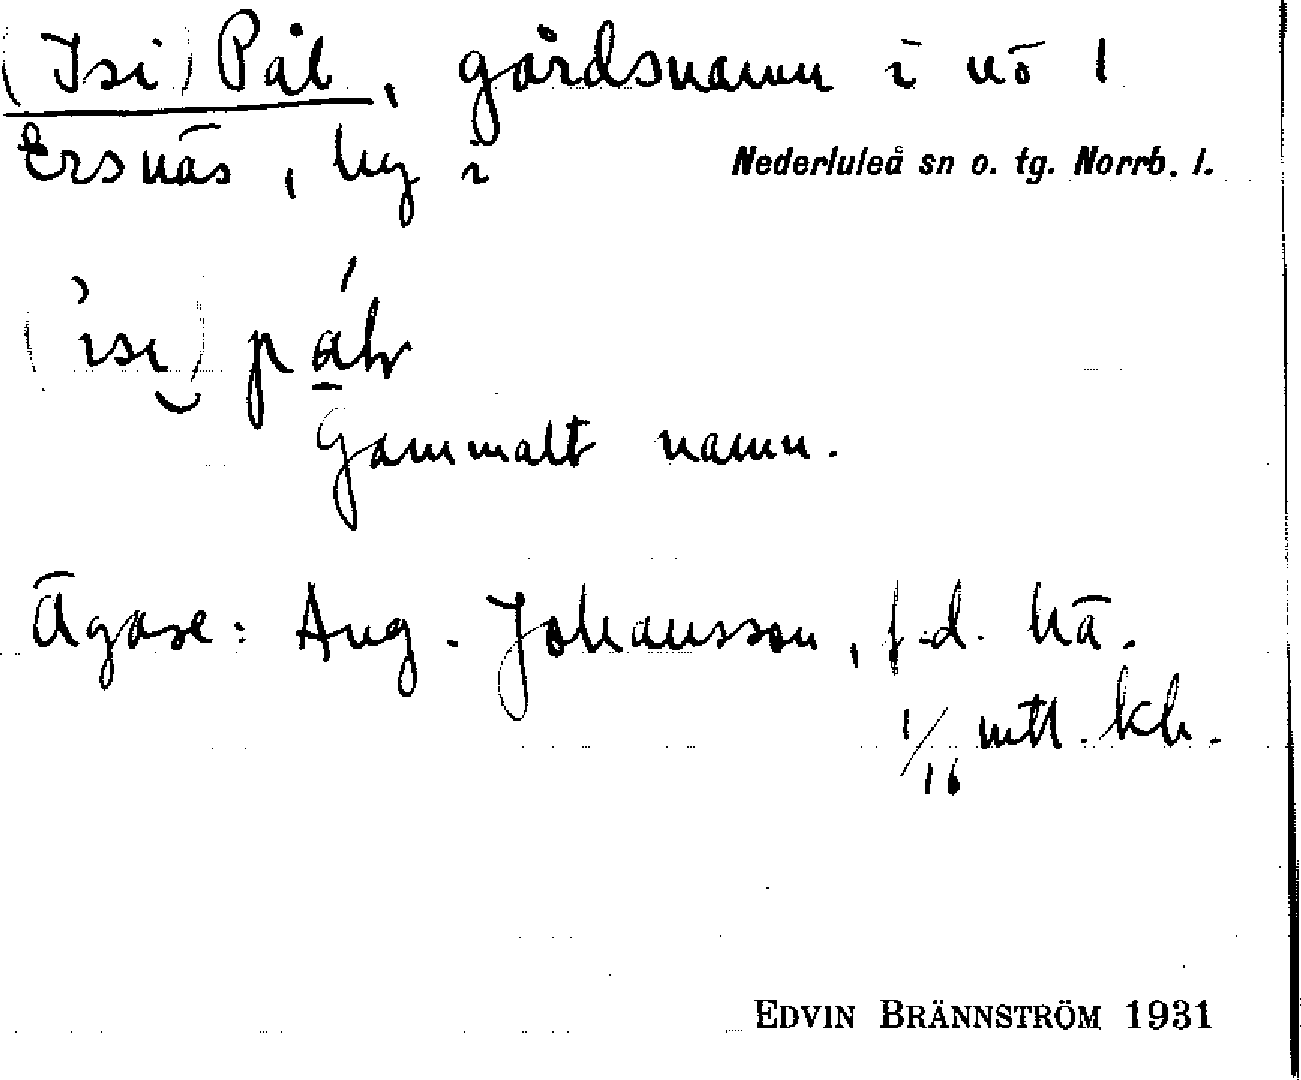 (Isi) Pål, gårdsnamn i nö 1
Ersnäs, by i Nederluleå sn o. tg. Norrb. l.
(ìsi) pálr
Gammalt namn.
Ägare: Aug. Johansson, f.d. hä.
1/16 mtl. kh.
EDVIN BRÄNNSTRÖM 1931